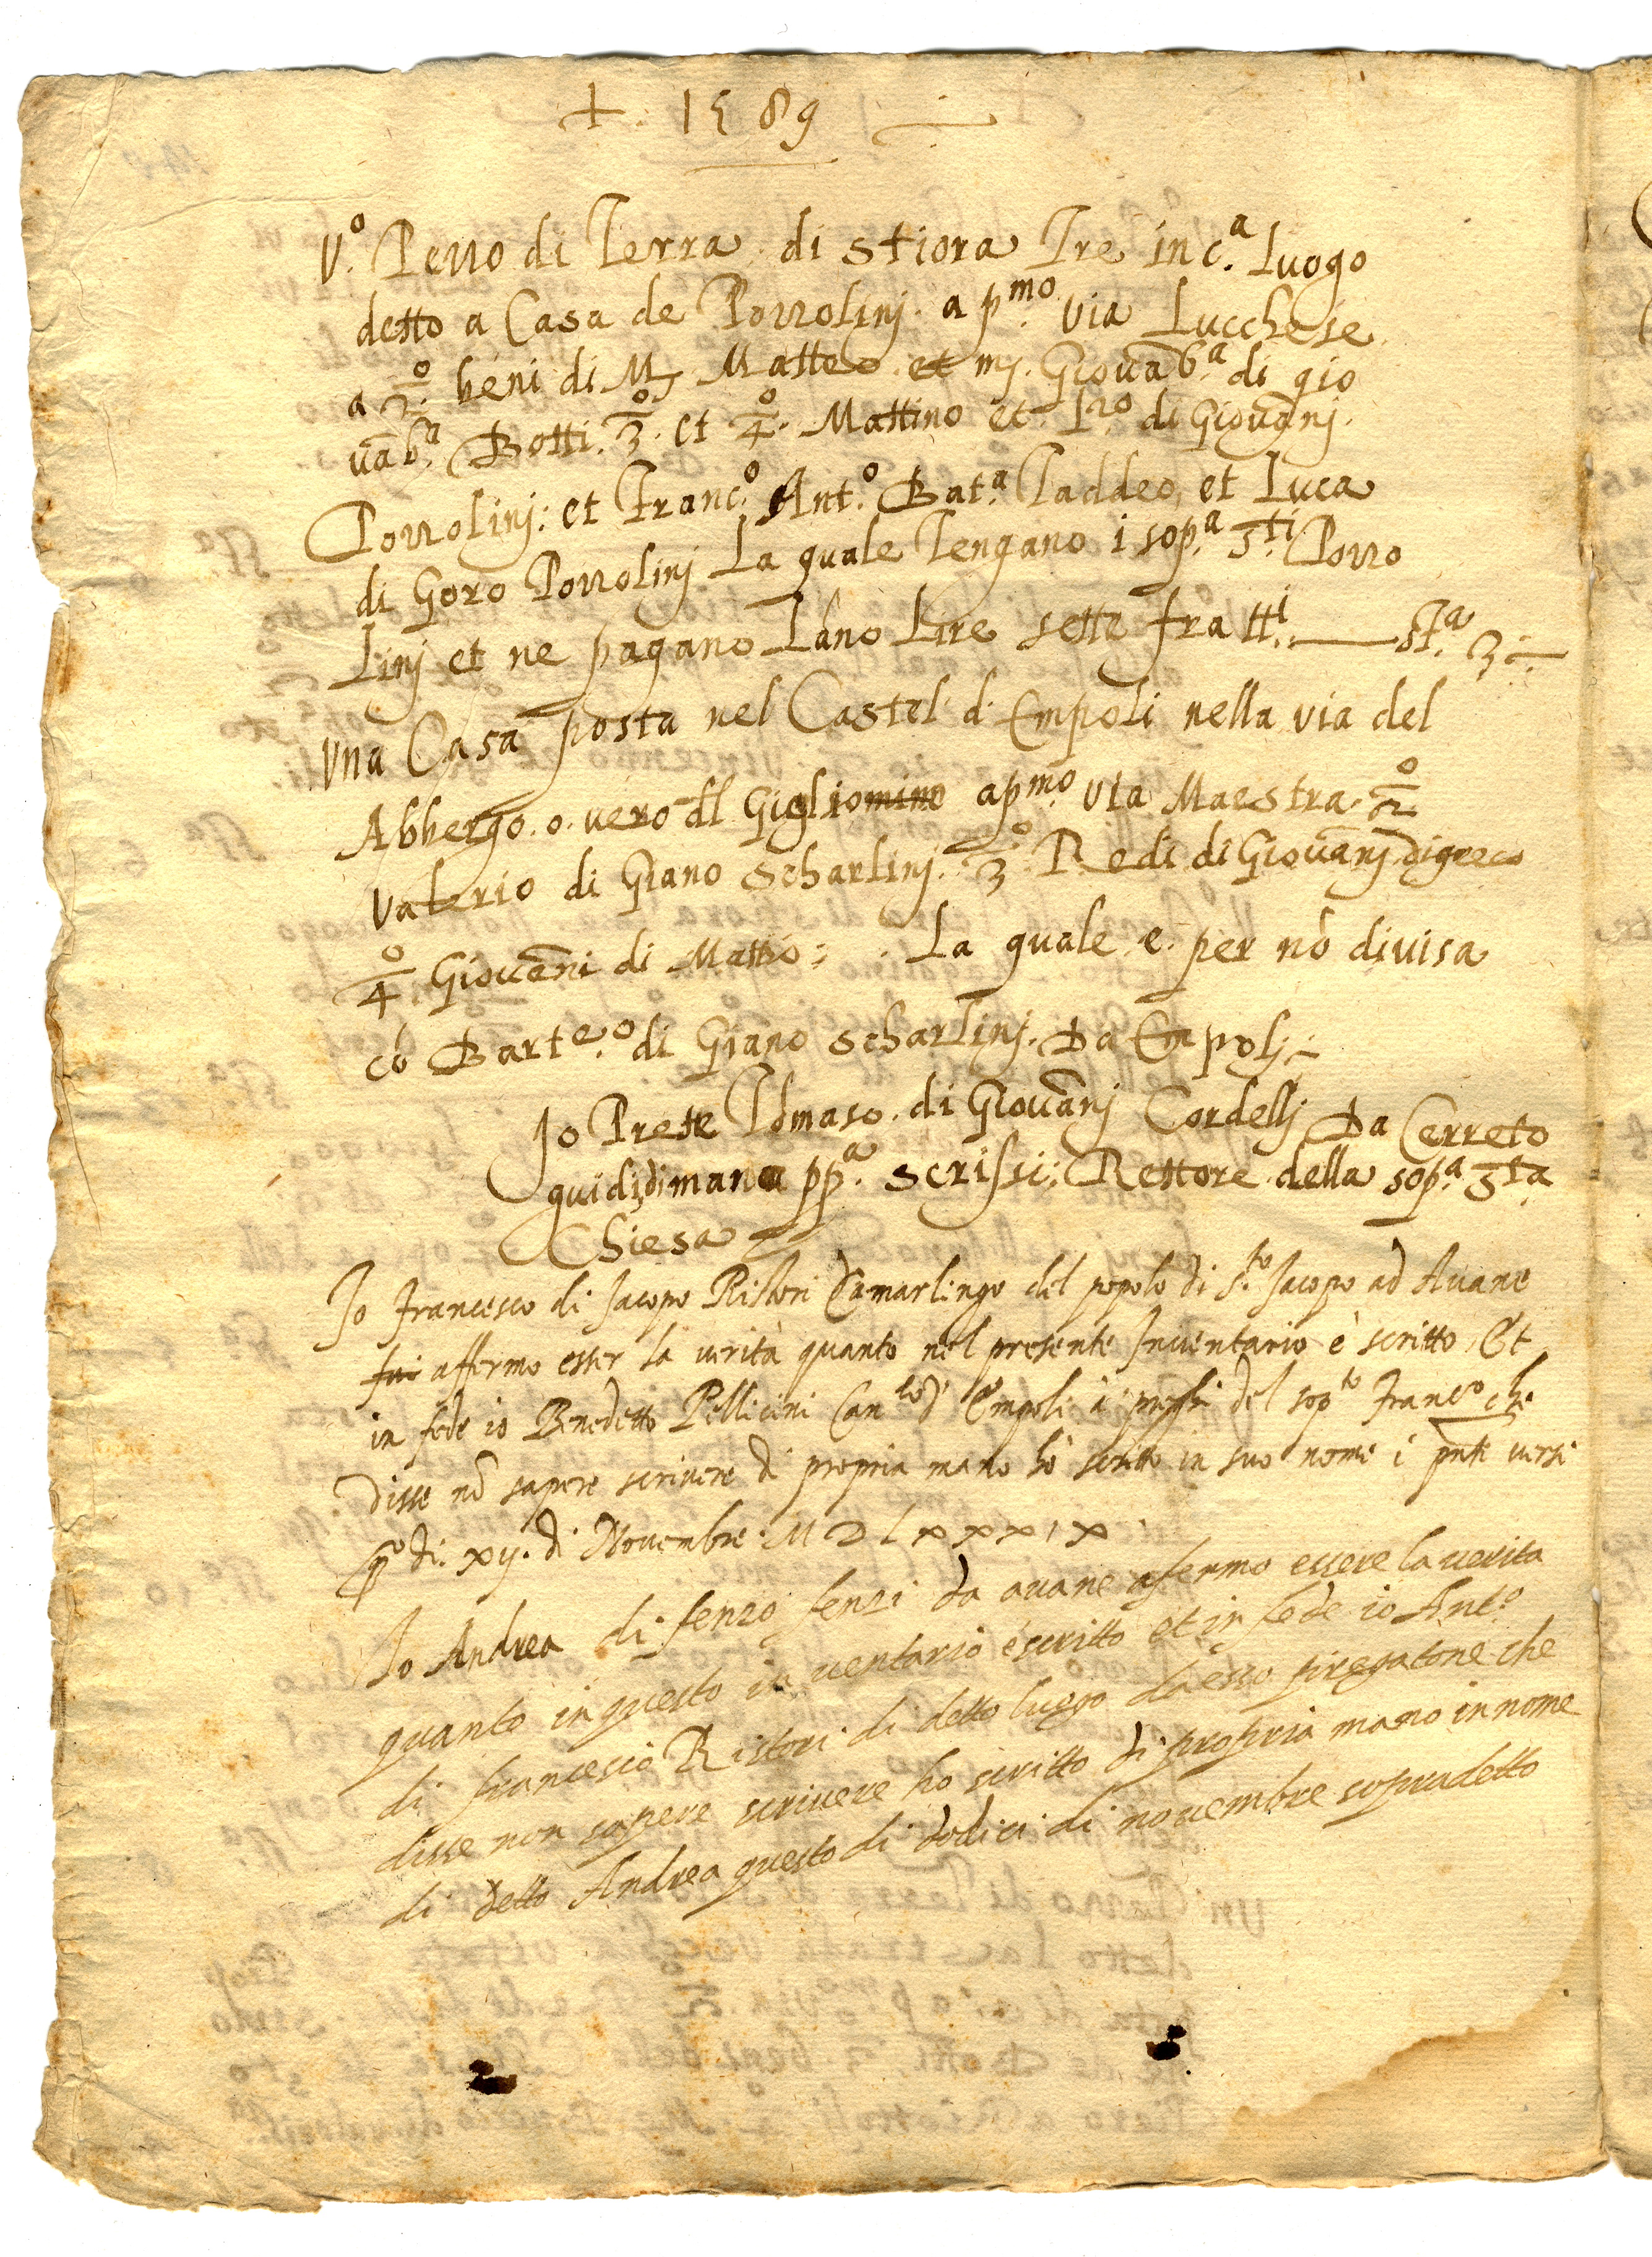 + 1589
V.º Pezzo di Terra di Stiora Tre in c.ª Luogo
detto a Casa de Pozzolinj. a p.mo via Lucchese
a 2.º beni di M. Matteo et mj. Giovāb.ª di gio
vāb.ª Botti. 3.º et 4.º Mattino et L.zo di Giovānj.
Pozzolinj: et Franc.º Ant.º Bat.ª Taddeo, et Luca
di Goro Pozzolinj La quale Tengano i sop.ª 3.ti Pozzo
Linj et ne pagano Lāno Lire sette fra tt.i st.ª 3
Vna Casa posta nel Castel d. Empoli nella via del
Abbergo. o. vero dl Giglio a p.mo via Maestra. 2.º
Valerio di Giano Scharlinj. 3.º Redi di Giovānj di greco
4.º Giovāni di Matteo; La quale e. per nō divisa
cō Barteº di Giano Scharlinj. Da Empolj
Io Prete Tōmaso. di Giovānj Cordellj Da Cerreto
guidi, di mano pp.ª scrissi: Rettore della sop.ª 3.ta
Chiesa
Io Francesco di Jacopo Ristori Camarlingo del popolo di S.to Jacopo ad Avane
affermo esser la verità quanto nel presente Inventario è scritto, Et
in fede io Benedetto Pellicini Can.re d' Empoli à preghi del sop.to Franc.o che
disse nō sapere scrivere di propria mano hò scritto in suo nome i pnti versi
q.o di. xij. di Novembre. MDLXXXIX.
Io Andrea di fenzo fenzi da avane afermo essere la verita
quanto in questo in ventario è scritto et in fede io Ant.º
di francesco Ristori di detto luogo da esso pregatone che
disse non sapere scrivere ho scritto di propria mano in nome
di detto Andrea questo di dodici di novembre sopradetto